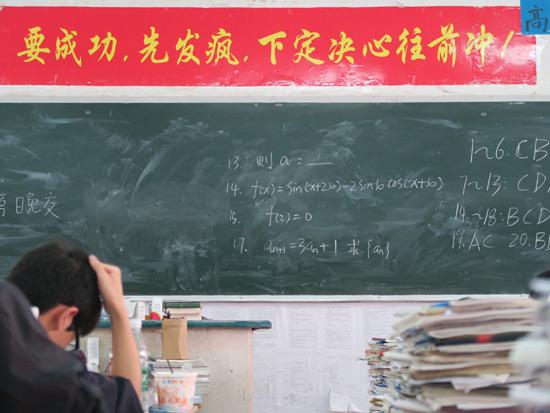 高
要成功,先发疯,下定决心往前冲!
13. 则a=__
14. f(x)=sin(x+2φ)-2sinφcos(x+φ)
15. f(2)=0
17. aₙ₊₁=3aₙ+1 求{aₙ}
日晚交
1~6: CB
7~13: CD
14~18: BCD
19. AC 20. B